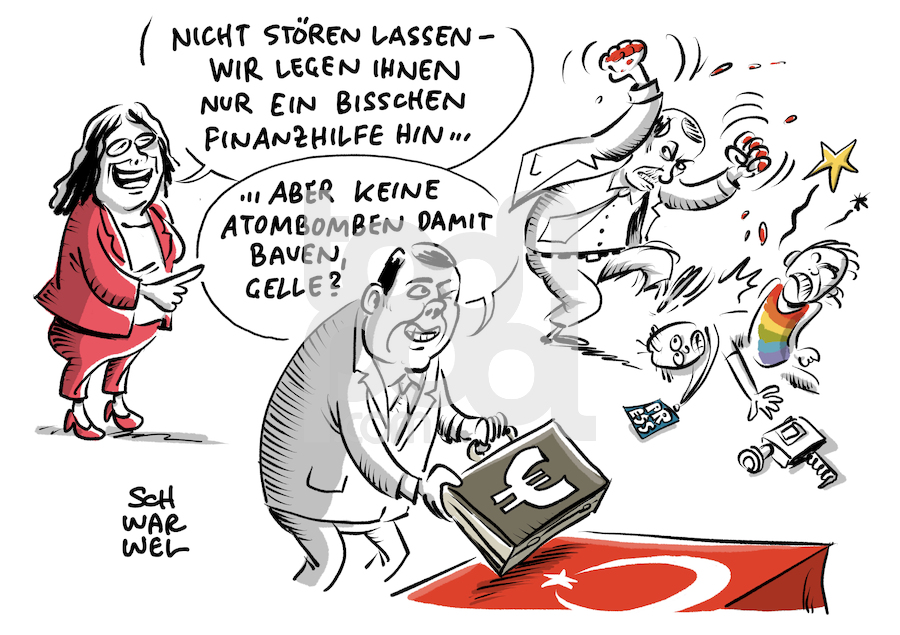 NICHT STÖREN LASSEN –
WIR LEGEN IHNEN
NUR EIN BISSCHEN
FINANZHILFE HIN ...
... ABER KEINE
ATOMBOMBEN DAMIT
BAUEN,
GELLE?
PR
ESS
€
SCH
WAR
WEL